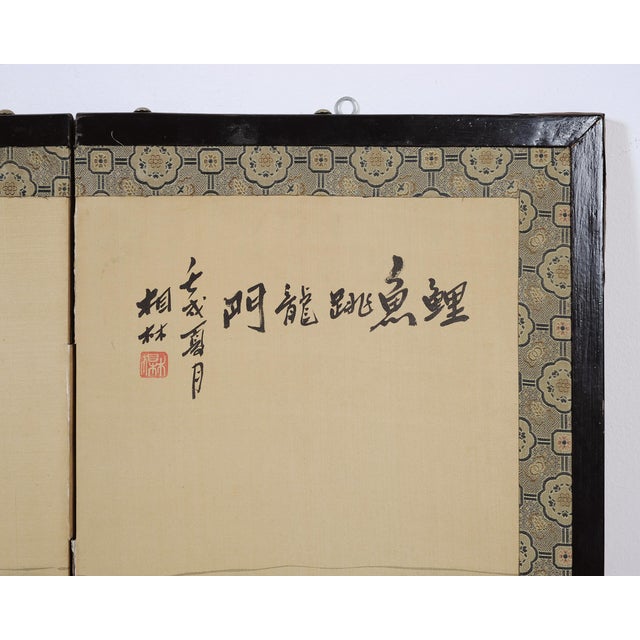 鯉魚跳龍門
壬戌夏月
相林